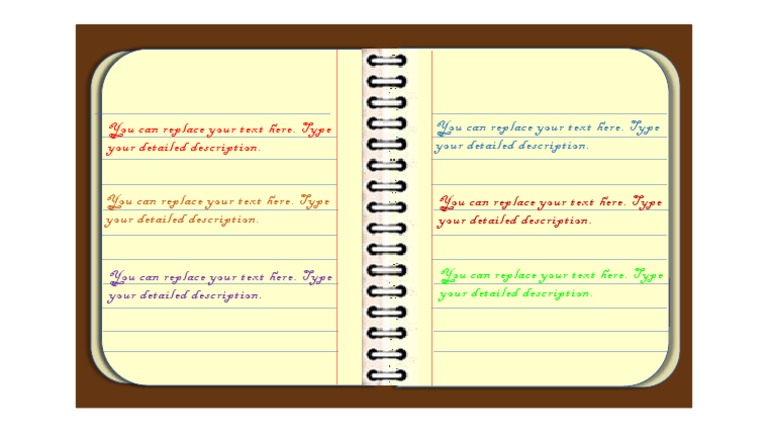 You can replace your text here. Type
your detailed description.
You can replace your text here. Type
your detailed description.
You can replace your text here. Type
your detailed description.
You can replace your text here. Type
your detailed description.
You can replace your text here. Type
your detailed description.
You can replace your text here. Type
your detailed description.